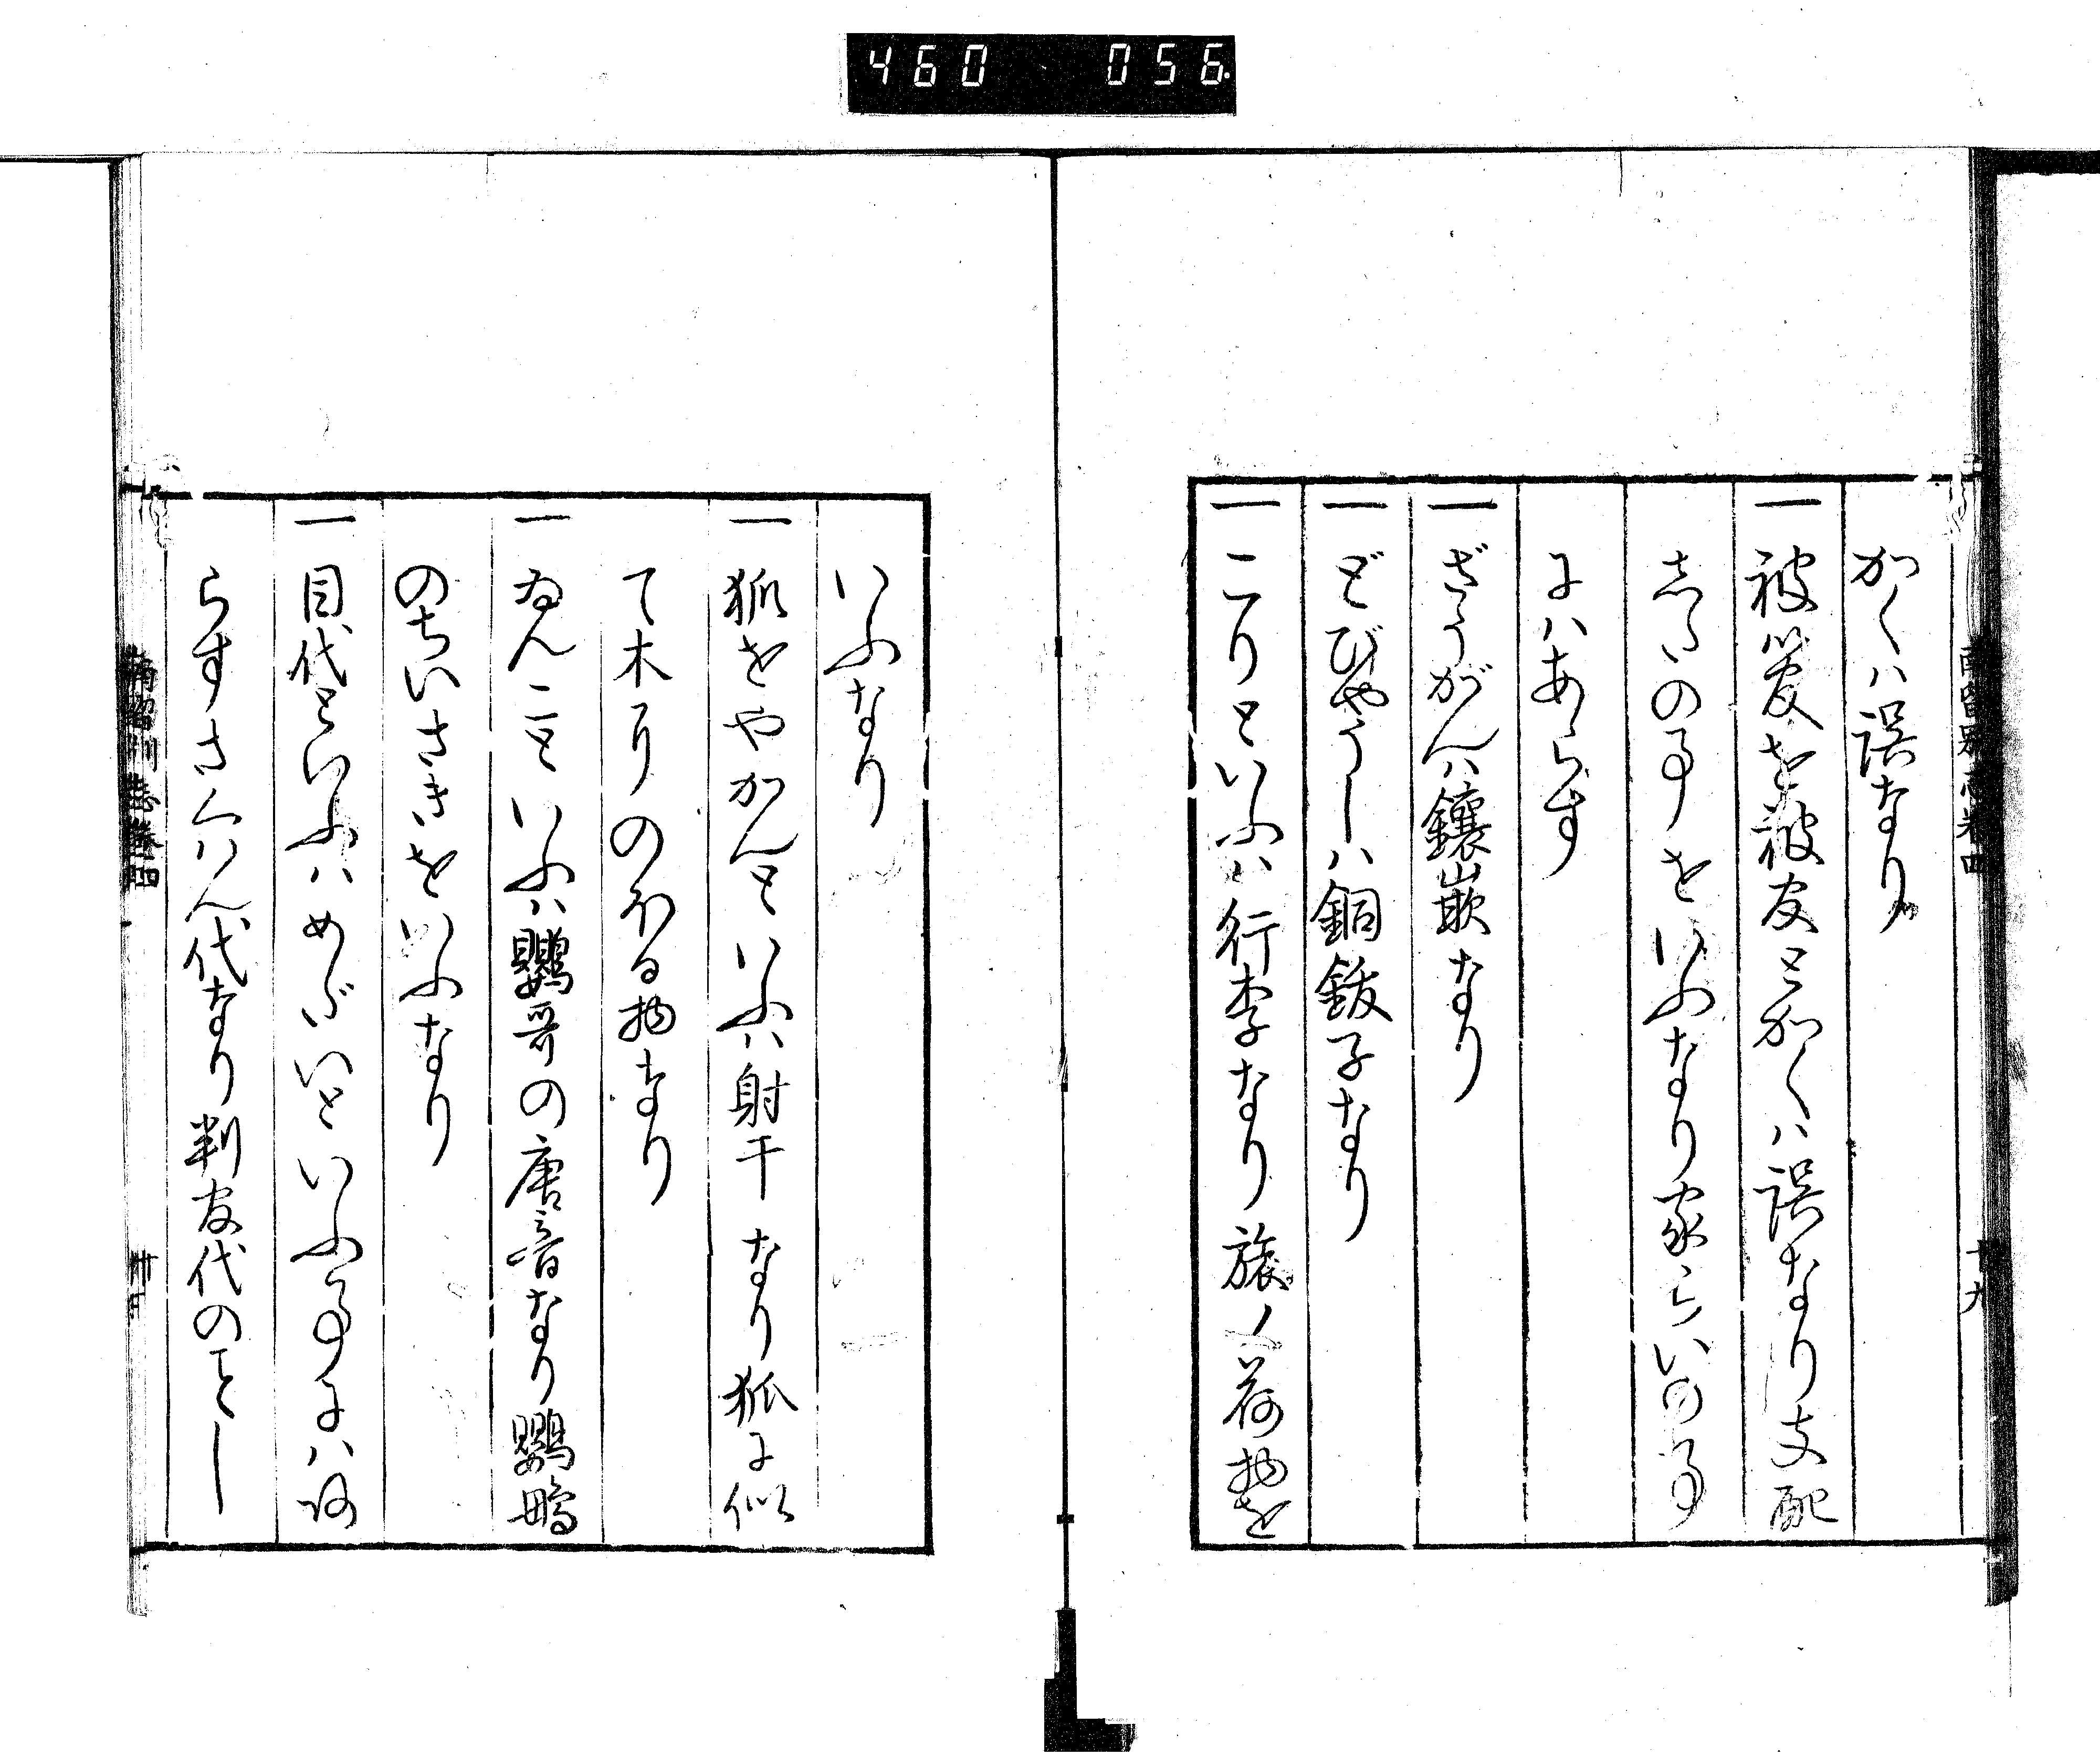 460 056
かくハ誤なり
一被管を被官とかくハ誤なり支配
したの事をいふなり家らいの事
にハあらす
一ざうがんハ鑲嵌なり
一どびやうしハ銅鈸子なり
一こりといふハ行李なり旅ノ荷物を
いふなり
一狐をやかんといふハ射干なり狐に似
て木にのほる物なり
一ゐんこといふハ鸚哥の唐音なり鸚鵡
のちいさきをいふなり
一目代といふハめがいといふ事にハあ
らすさくハん代なり判官代のことし